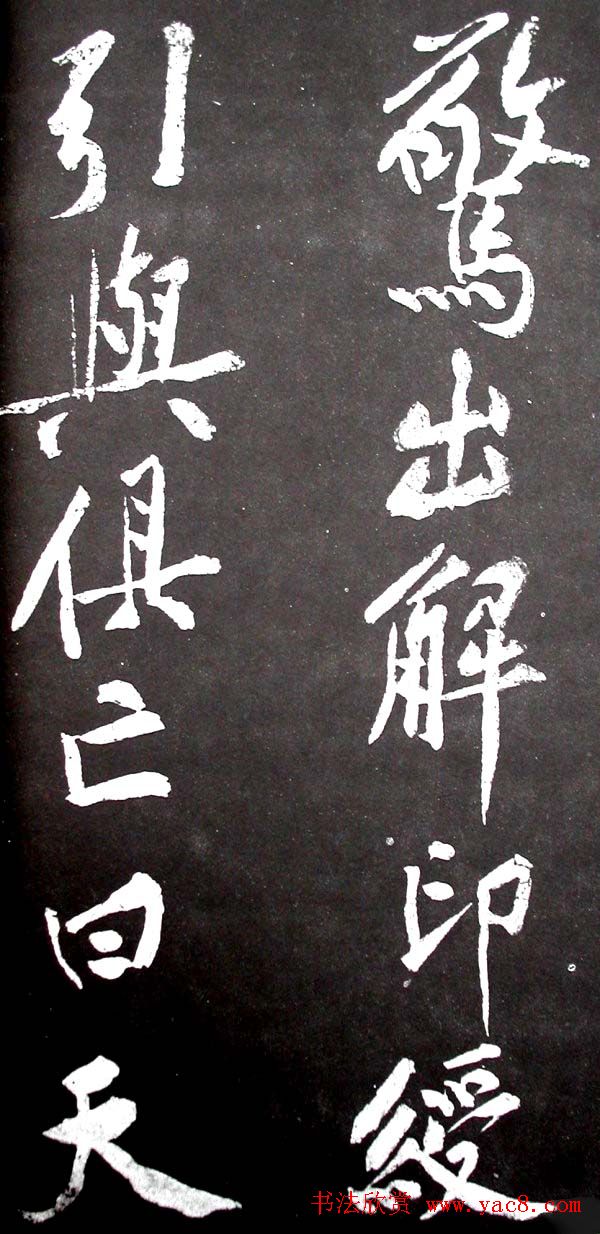 驚出解印綬
引與俱亡曰天
书法欣赏 www.yac8.com